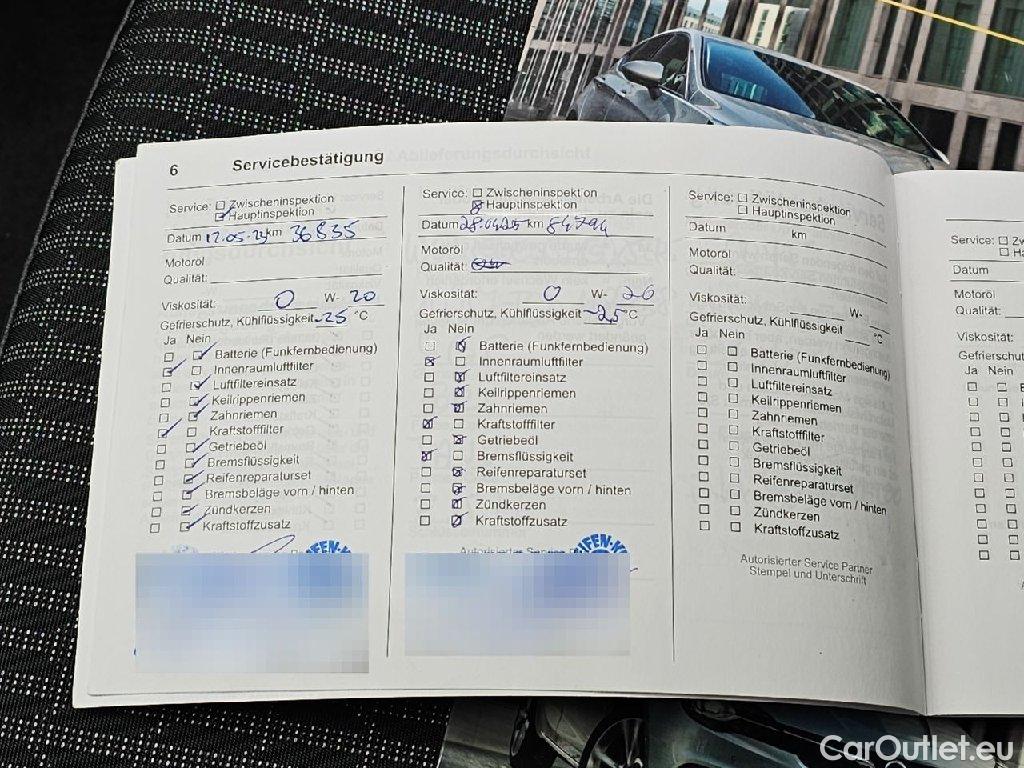 6 Servicebestätigung
Service: Zwischeninspektion
Hauptinspektion
Datum 12.05.23 km 36835
Motoröl
Qualität:
Viskosität: 0 W- 20
Gefrierschutz, Kühlflüssigkeit -25 °C
Ja Nein
Batterie (Funkfernbedienung)
Innenraumluftfilter
Luftfiltereinsatz
Keilrippenriemen
Zahnriemen
Kraftstofffilter
Getriebeöl
Bremsflüssigkeit
Reifenreparaturset
Bremsbeläge vorn / hinten
Zündkerzen
Kraftstoffzusatz
Service: Zwischeninspektion
Hauptinspektion
Datum 28.04.25 km 84794
Motoröl
Qualität:
Viskosität: 0 W- 20
Gefrierschutz, Kühlflüssigkeit -25 °C
Ja Nein
Batterie (Funkfernbedienung)
Innenraumluftfilter
Luftfiltereinsatz
Keilrippenriemen
Zahnriemen
Kraftstofffilter
Getriebeöl
Bremsflüssigkeit
Reifenreparaturset
Bremsbeläge vorn / hinten
Zündkerzen
Kraftstoffzusatz
Autorisierter Service
Service: Zwischeninspektion
Hauptinspektion
Datum km
Motoröl
Qualität:
Viskosität: W-
Gefrierschutz, Kühlflüssigkeit °C
Ja Nein
Batterie (Funkfernbedienung)
Innenraumluftfilter
Luftfiltereinsatz
Keilrippenriemen
Zahnriemen
Kraftstofffilter
Getriebeöl
Bremsflüssigkeit
Reifenreparaturset
Bremsbeläge vorn / hinten
Zündkerzen
Kraftstoffzusatz
Autorisierter Service Partner
Stempel und Unterschrift
Service:
Datum
Motoröl
Qualität:
Viskosität:
Ja Nein
CarOutlet.eu